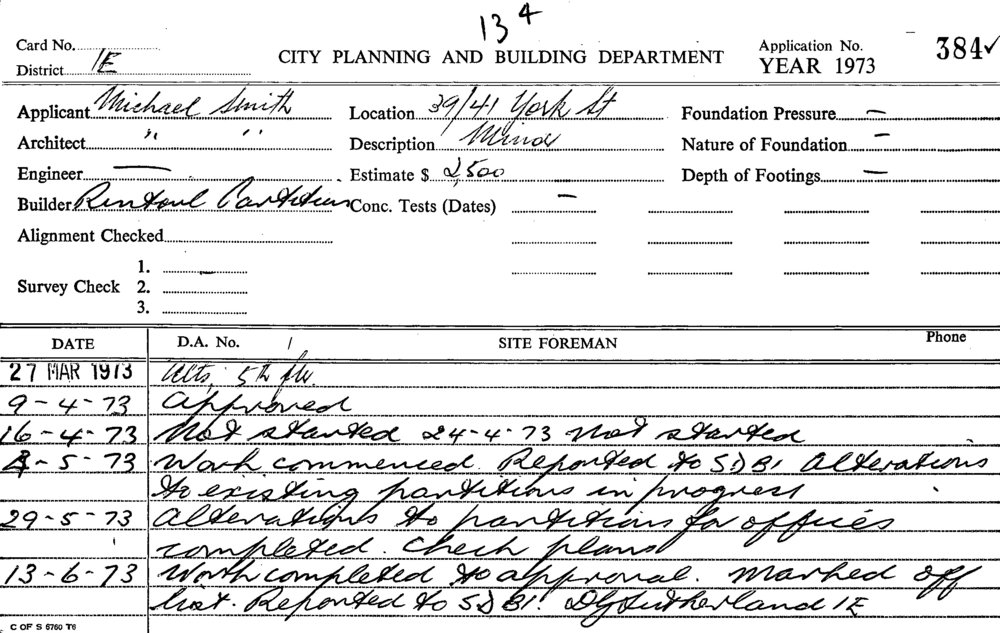 13 4
Card No.
District 1E
CITY PLANNING AND BUILDING DEPARTMENT
Application No. 384✓
YEAR 1973
Applicant Michael Smith
Location 39/41 York St
Foundation Pressure —
Architect " "
Description Minor
Nature of Foundation —
Engineer —
Estimate $ 2,500
Depth of Footings —
Builder Rintoul Partitions
Conc. Tests (Dates) —
Alignment Checked
Survey Check 1. —
2.
3.
DATE D.A. No. / SITE FOREMAN Phone
27 MAR 1973 Alts, 5th flr.
9-4-73 Approved
16-4-73 Not started 24-4-73 Not started
-5-73 Work commenced. Reported to SDBI Alterations
to existing partitions in progress
29-5-73 Alterations to partitions for offices
completed. Check plans
13-6-73 Work completed to approval. Marked off
list. Reported to SDBI. DG Sutherland 1E
C OF S 5760 T6